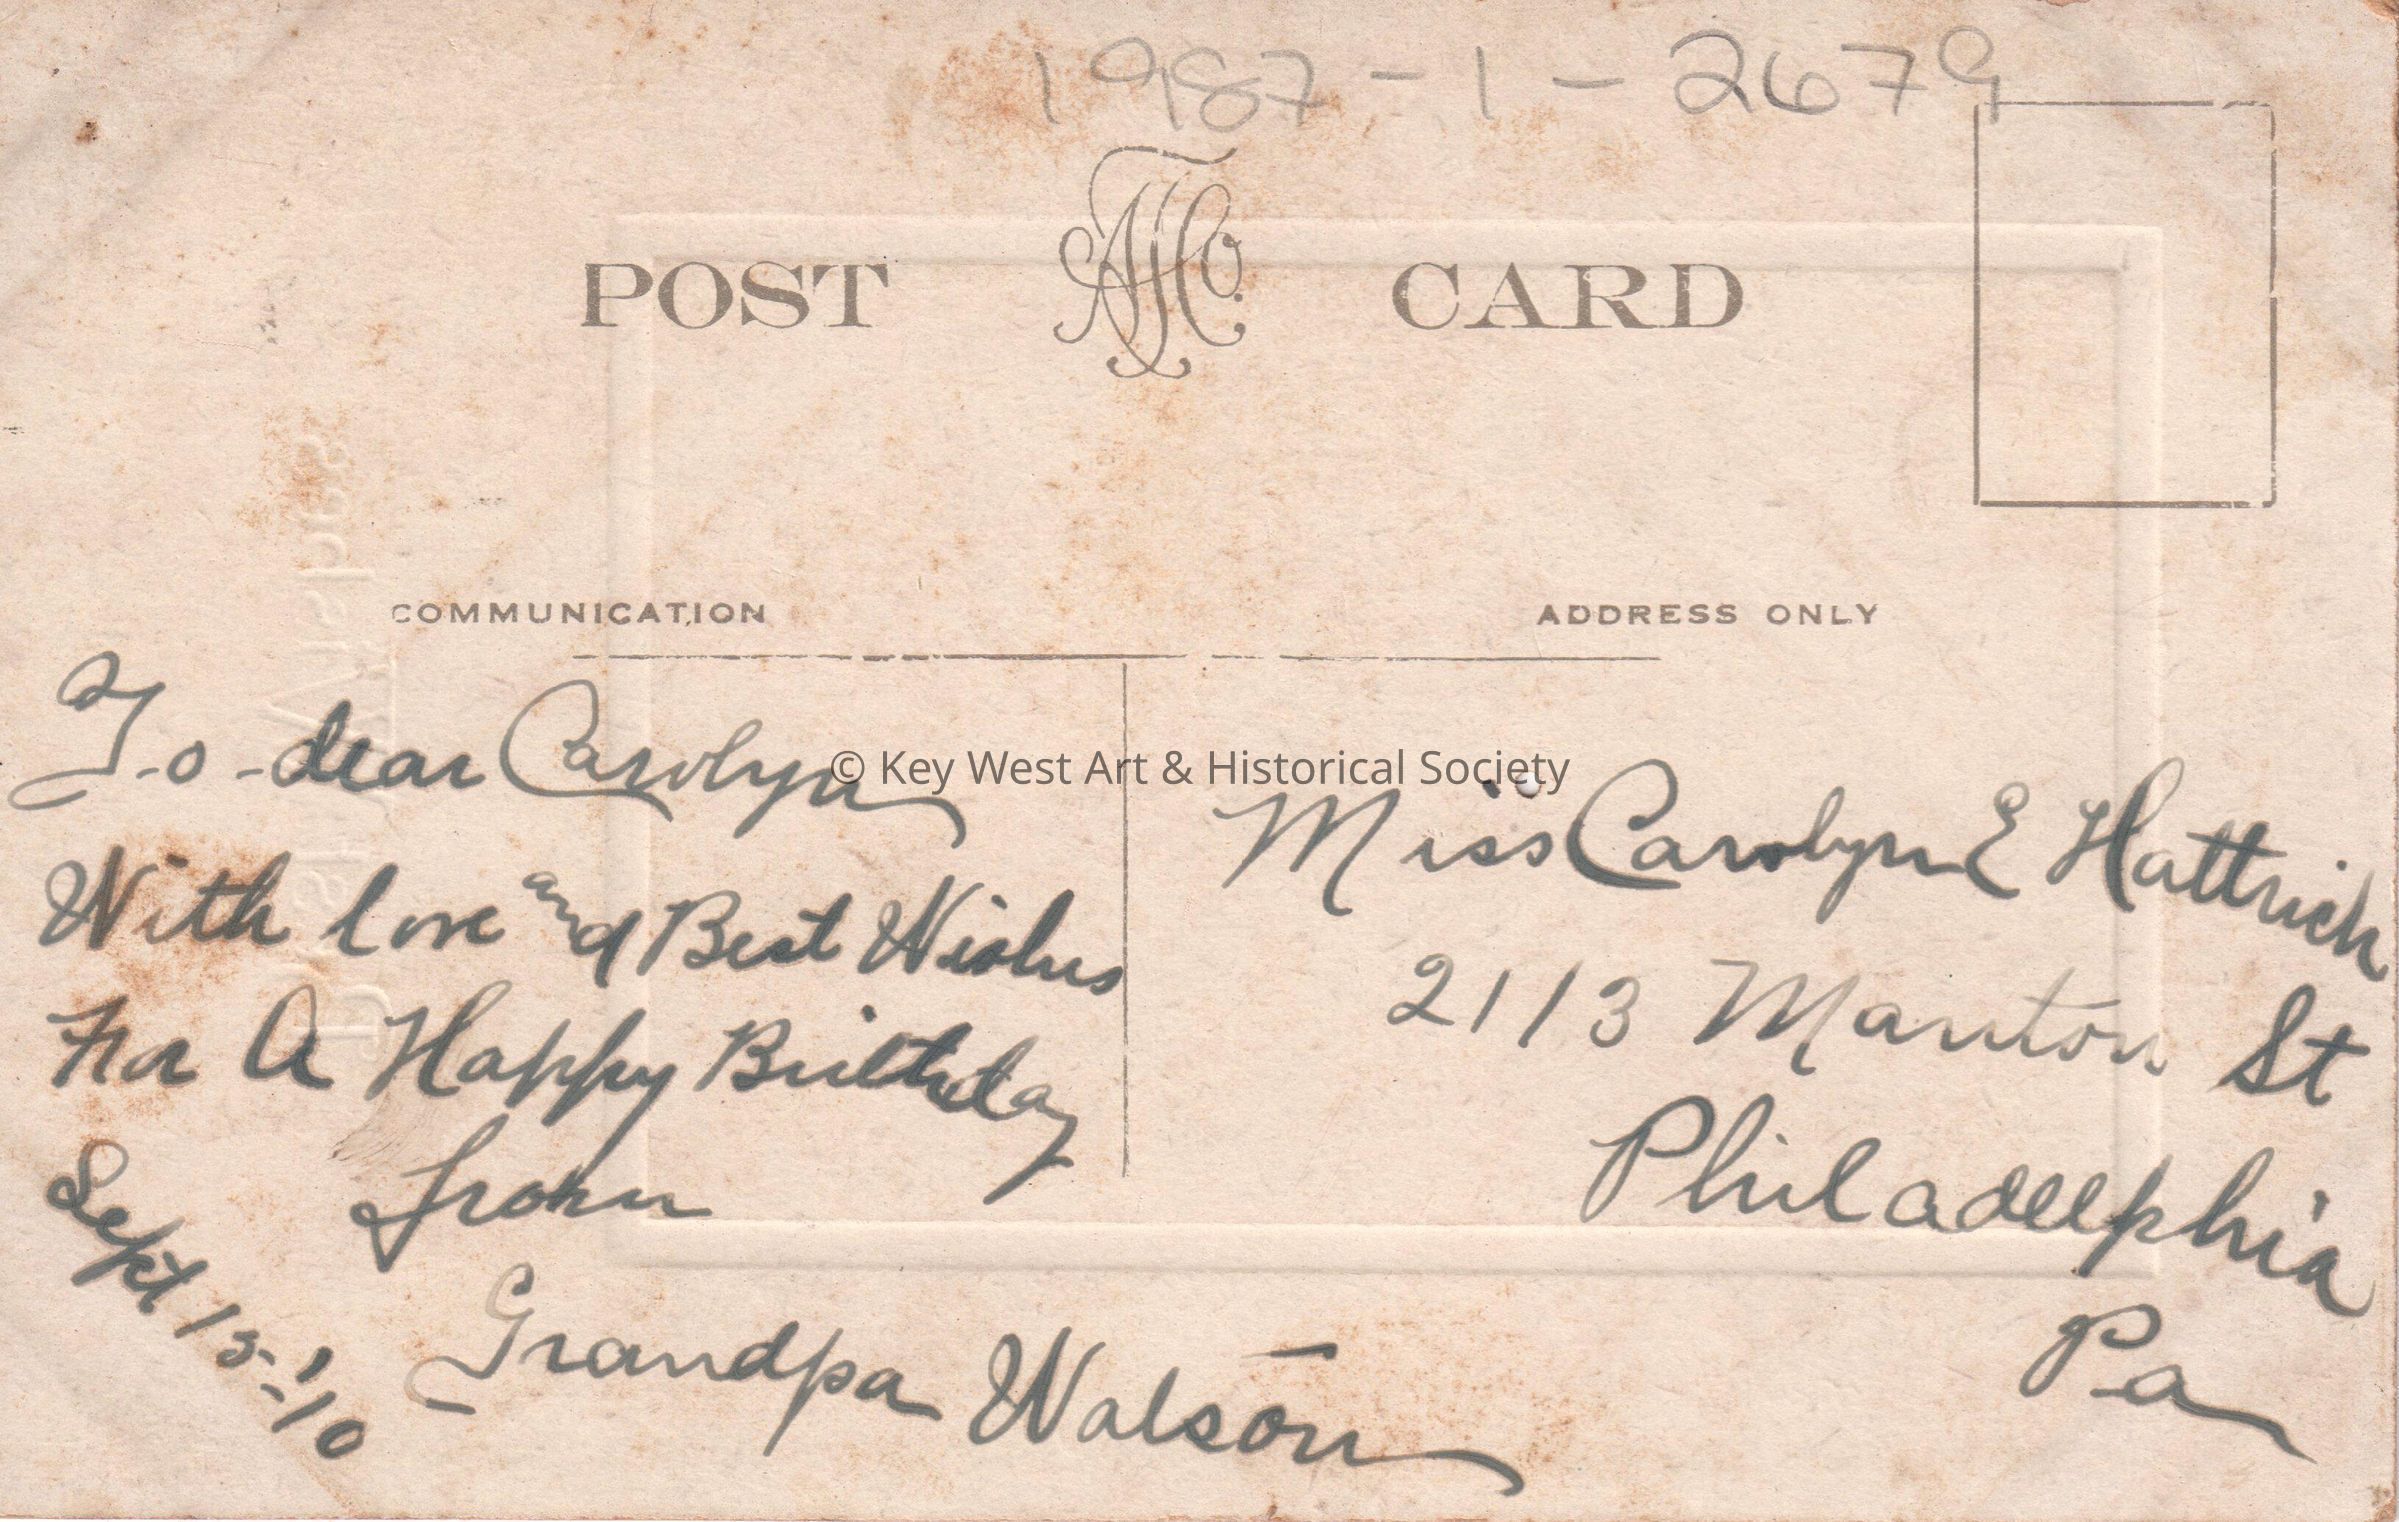 1987-1-2679
POST CARD
COMMUNICATION
ADDRESS ONLY
© Key West Art & Historical Society
To dear Carolyn
With love and Best Wishes
For A Happy Birthday
From
Grandpa Watson
Sept 15-'10
Miss Carolyn E Hattrich
2113 Manton St
Philadelphia
Pa